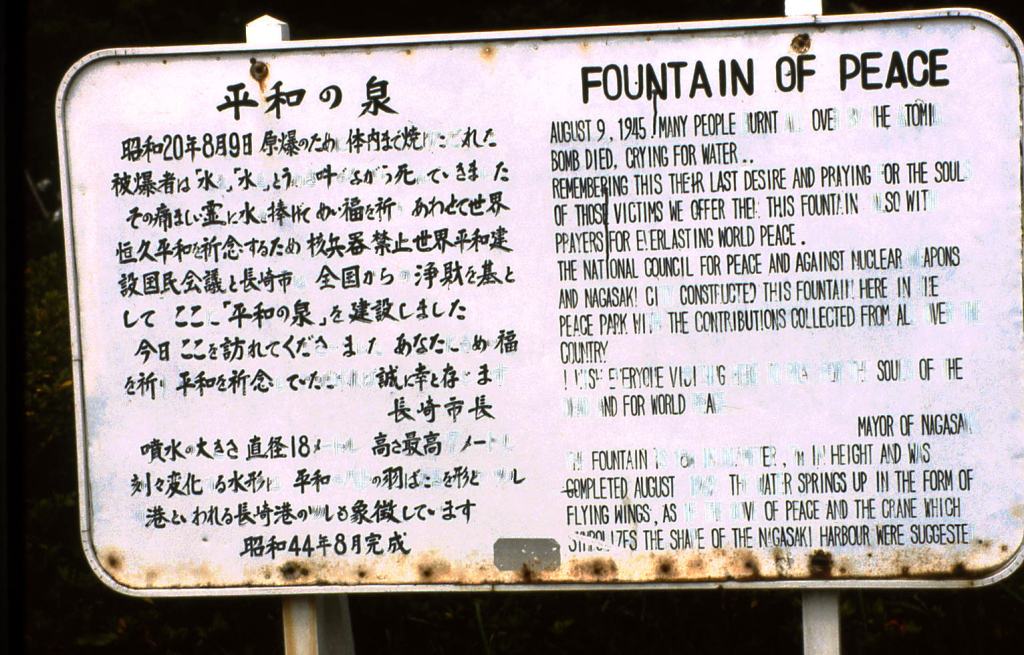 平和の泉
昭和20年8月9日 原爆のため 体内まで焼けただれた
被爆者は「水」「水」とうめき叫びながら死んでいきました
その痛ましい霊に水を捧げて めい福を祈り あわせて世界
恒久平和を祈念するため 核兵器禁止世界平和建
設国民会議と長崎市が 全国からの浄財を基と
して ここに「平和の泉」を建設しました
今日 ここを訪れてくださいました あなたに めい福
を祈り 平和を祈念していただければ 誠に幸と存じます
長崎市長
噴水の大きさ 直径18メートル 高さ最高 メートル
刻々変化する水形は 平和の の羽ばたきを形どり ツル
港といわれる長崎港のツルも象徴しています
昭和44年8月完成
FOUNTAIN OF PEACE
AUGUST 9, 1945. MANY PEOPLE BURNT ALL OVER BY THE ATOMIC
BOMB DIED, CRYING FOR WATER..
REMEMBERING THIS THEIR LAST DESIRE AND PRAYING FOR THE SOUL
OF THOSE VICTIMS WE OFFER THEM THIS FOUNTAIN ALSO WITH
PRAYERS FOR EVERLASTING WORLD PEACE.
THE NATIONAL COUNCIL FOR PEACE AND AGAINST NUCLEAR WEAPONS
AND NAGASAKI CITY CONSTRUCTED THIS FOUNTAIN HERE IN THE
PEACE PARK WITH THE CONTRIBUTIONS COLLECTED FROM ALL OVER THE
COUNTRY.
I WISH EVERYONE VISITING HERE TO PRAY FOR THE SOULS OF THE
DEAD AND FOR WORLD PEACE
MAYOR OF NAGASAKI
THE FOUNTAIN IS 18m IN DIAMETER, m IN HEIGHT AND WAS
COMPLETED AUGUST THE WATER SPRINGS UP IN THE FORM OF
FLYING WINGS, AS IF THE DOVE OF PEACE AND THE CRANE WHICH
SYMBOLIZES THE SHAPE OF THE NAGASAKI HARBOUR WERE SUGGESTED